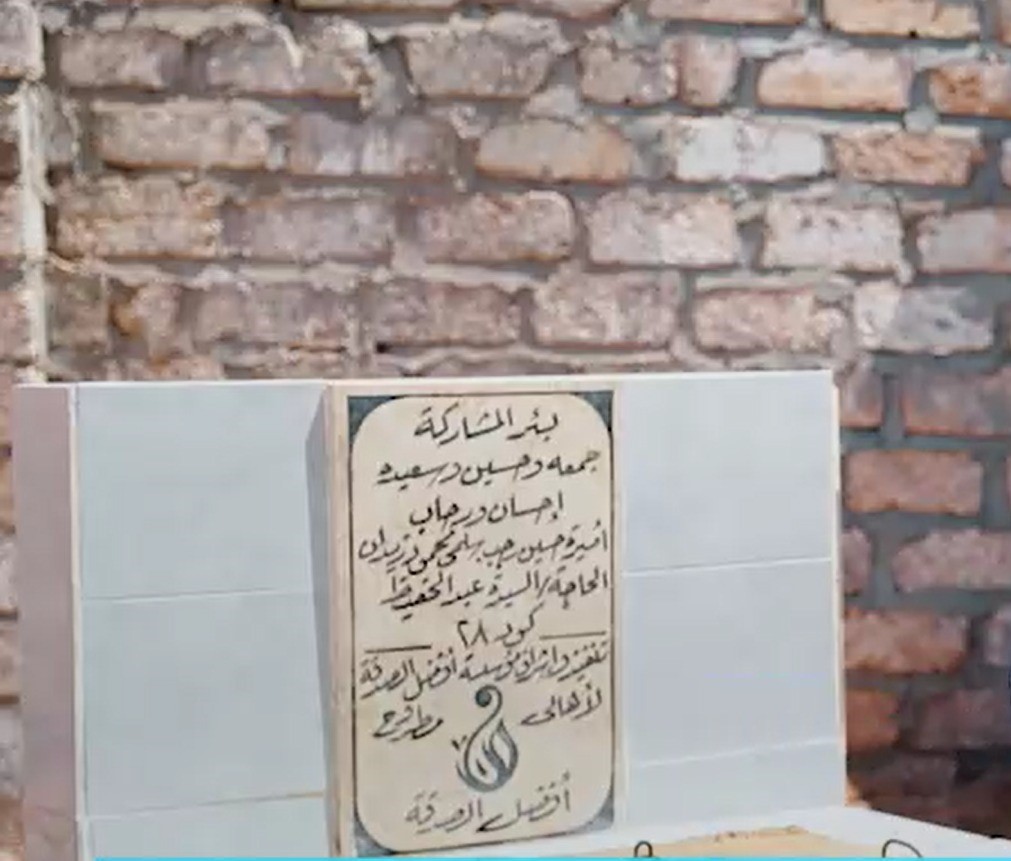 بئر المشاركة
جمعه وحسين وسعيده
إحسان ورحاب
أميرة حسين رجب سلمى محمود زيدان
الحاجة/السيدة عبد الحفيظ
كود ٢٨
تنفيذ واشراف مؤسسة أفضل الصدقة
لأهالى مطروح
أفضل الصدقة